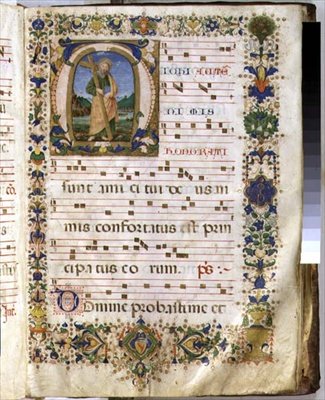 M ICHI AUTĒ
NI MIS
HONORATI
sunt ami ci tui de us ni
mis confortatus est prin
cipatus eo rum. ps:
Domine probasti me et